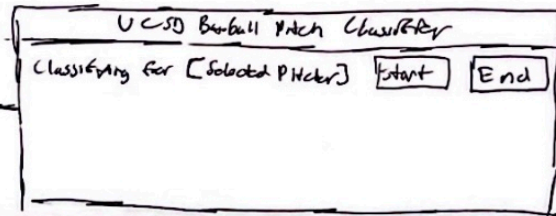 UCSD Baseball Pitch Classifier
Classifying for [Selected Pitcher] Start End